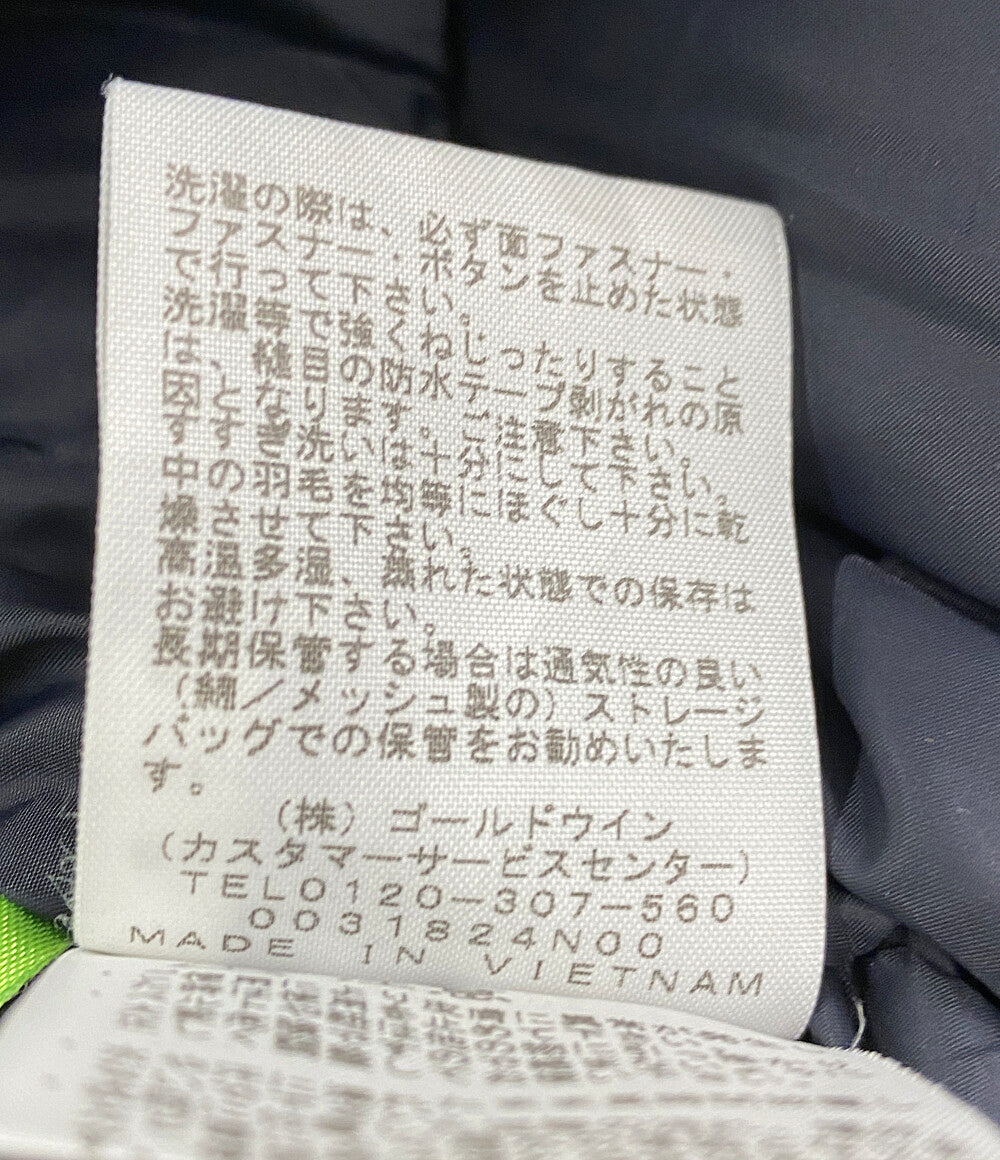 洗濯の際は、必ず面ファスナー・
ファスナー、ボタンを止めた状態
で行って下さい。
洗濯等で強くねじったりすること
は、縫目の防水テープ剥がれの原
因となります。ご注意下さい。
すすぎ洗いは十分にして下さい。
中の羽毛を均等にほぐし十分に乾
燥させて下さい。
高温多湿、蒸れた状態での保存は
お避け下さい。
長期保管する場合は通気性の良い
(綿/メッシュ製の)ストレージ
バッグでの保管をお勧めいたしま
す。
(株)ゴールドウイン
(カスタマーサービスセンター)
TEL0120-307-560
0031824N00
MADE IN VIETNAM